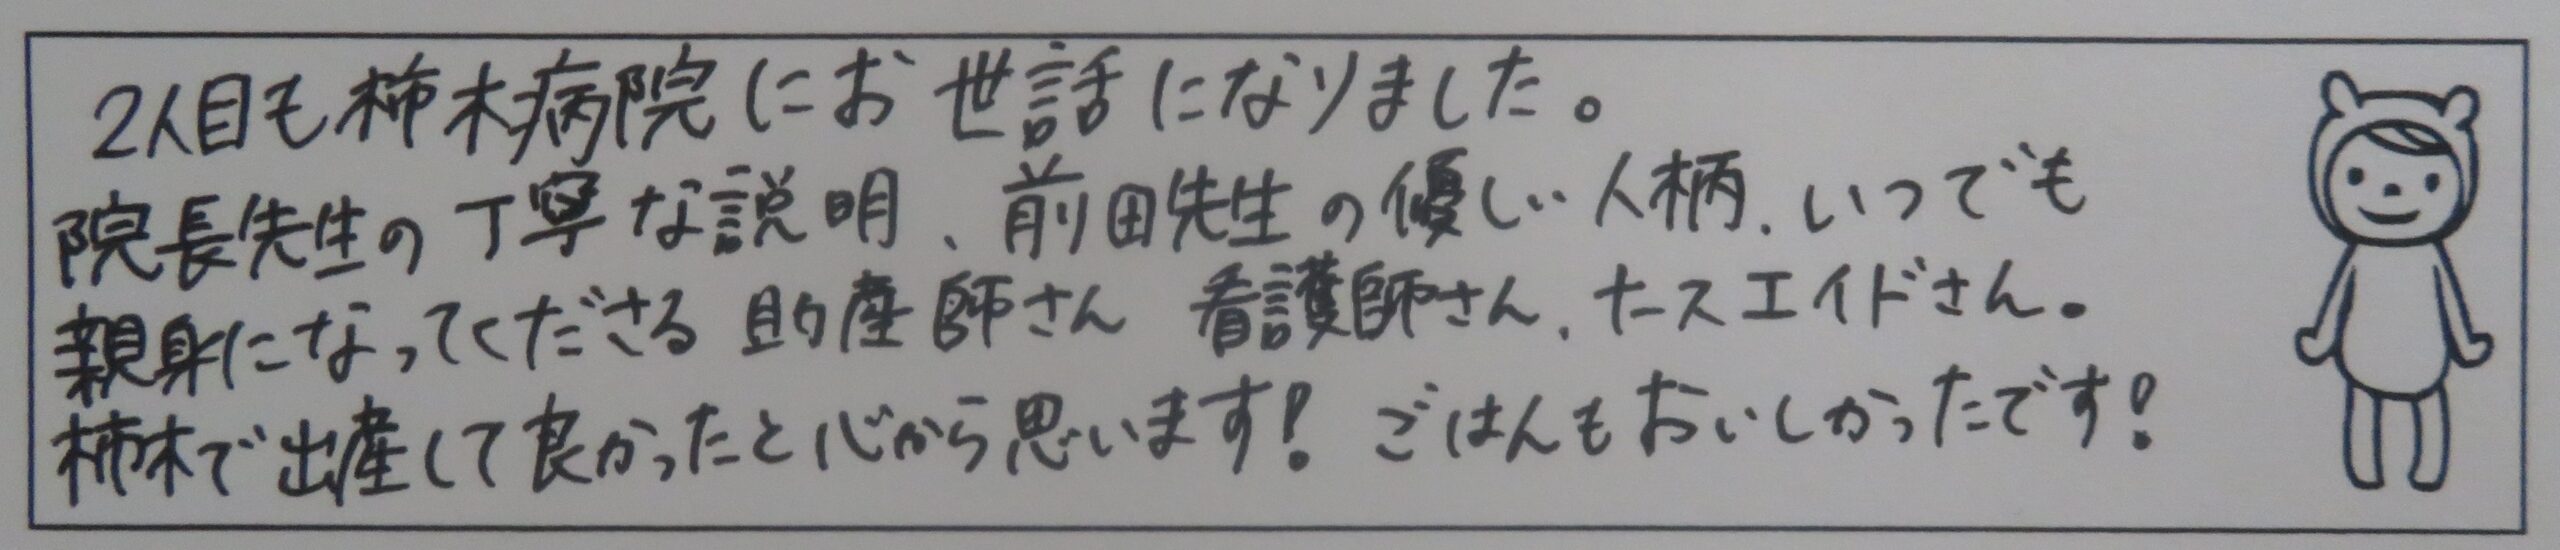 2人目も柿木病院にお世話になりました。
院長先生の丁寧な説明、前田先生の優しい人柄、いつでも
親身になってくださる助産師さん 看護師さん、ナースエイドさん。
柿木で出産して良かったと心から思います！ごはんもおいしかったです！